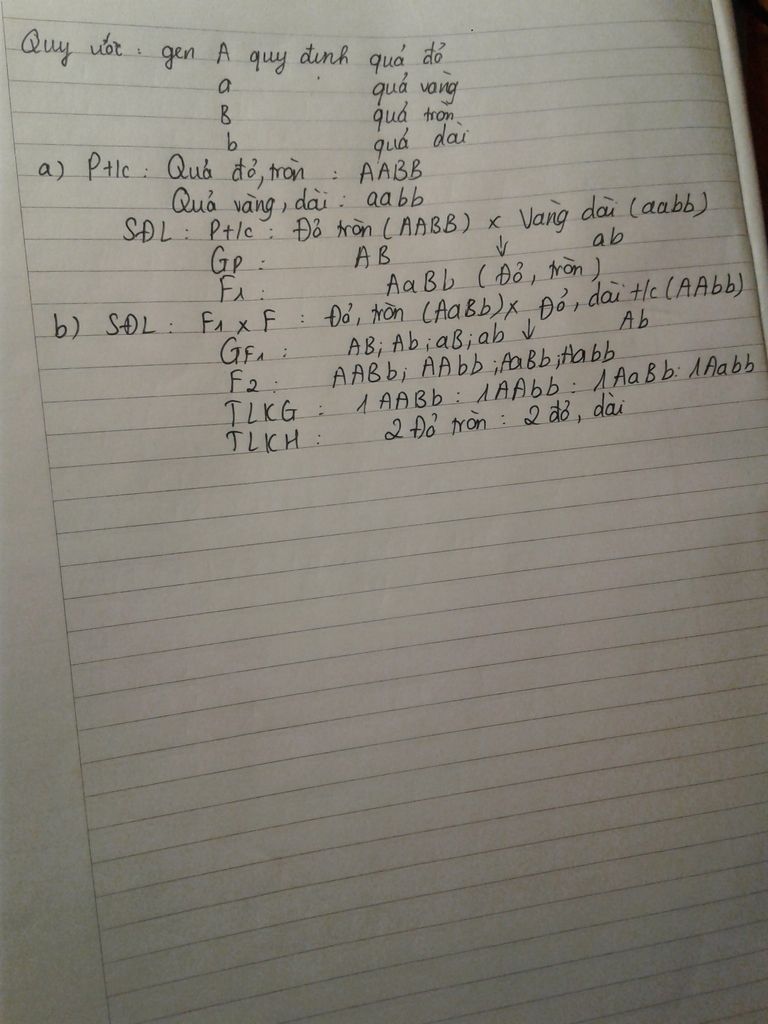 Quy ước : gen A quy định quả đỏ
a quả vàng
B quả tròn
b quả dài
a) Pt/c : Quả đỏ, tròn : AABB
Quả vàng, dài : aabb
SĐL : Pt/c : Đỏ tròn (AABB) × Vàng dài (aabb)
GP : AB ↓ ab
F1 : AaBb (Đỏ, tròn)
b) SĐL : F1 × F : Đỏ, tròn (AaBb) × Đỏ, dài t/c (AAbb)
GF1 : AB; Ab; aB; ab ↓ Ab
F2 : AABb; AAbb ; AaBb; Aabb
TLKG : 1AABb : 1AAbb : 1AaBb : 1Aabb
TLKH : 2 Đỏ tròn : 2 đỏ, dài